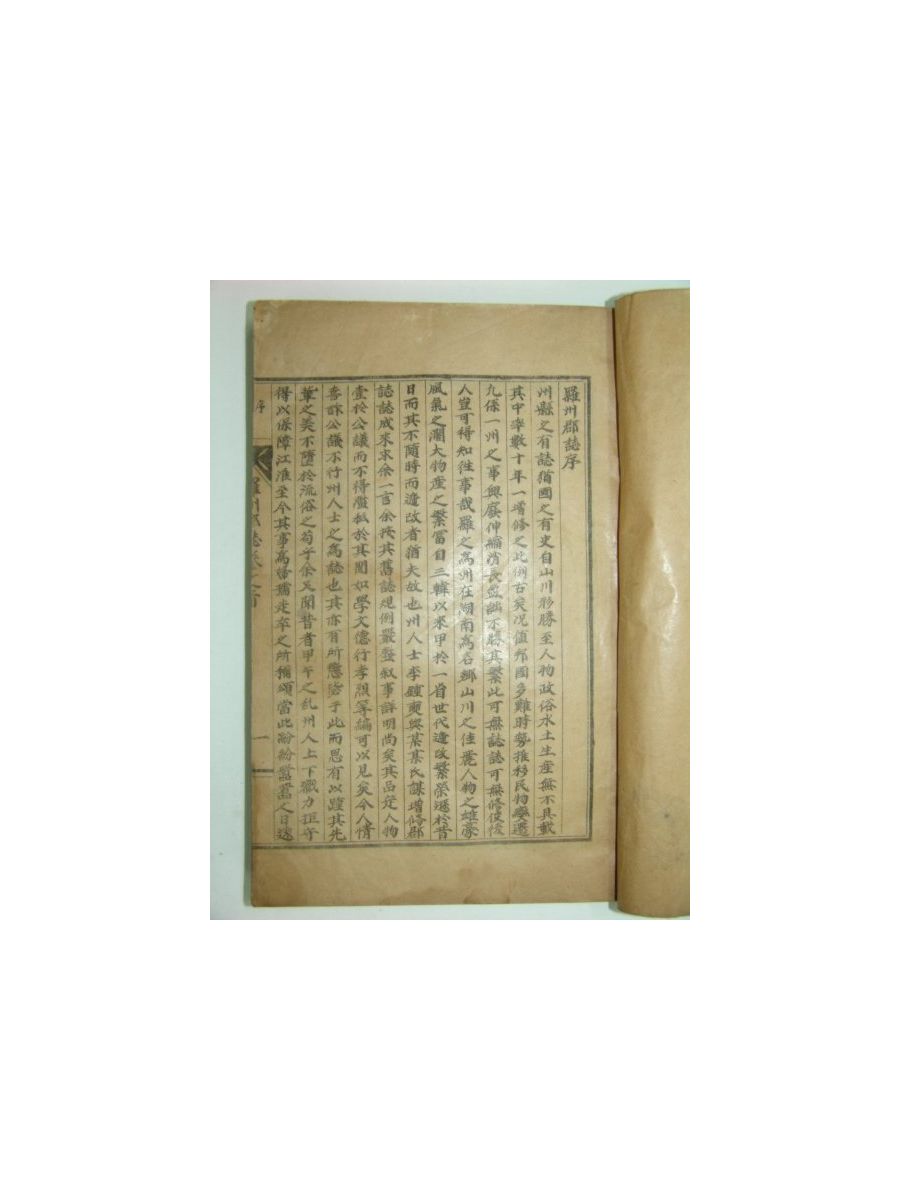 羅州郡誌序
州縣之有誌猶國之有史自山川形勝至人物政俗水土生産無不具載
其中率數十年一增修之此例古矣况值邦國多難時勢推移民物變遷
凡係一州之事興廢伸縮消長盈縮不勝其繁此可無誌誌可無修使後
人豈可得知往事哉羅之爲州在湖南爲名鄉山川之佳麗人物之雄豪
風氣之濶大物産之繁富自三韓以來甲於一省世代遷改繁榮遜於昔
日而其不隨時而遷改者猶夫故也州人士李鍾奭與某某氏謀增修郡
誌誌成來求余一言余按其舊誌規例嚴整叙事詳明尚矣其品定人物
壹於公議而不得濫私於其間如學文德行孝烈等編可以見矣今人情
公議不行州人士之爲誌也其亦有所于此而思有以踵其先
華之美不墮於流俗之苟乎余又聞昔者甲午之乱州人上下戮力拒守
得以保障江淮至今其事爲婦孺走卒之所稱頌當此紛紛囂囂之日遠
序
羅州郡誌卷之首
一